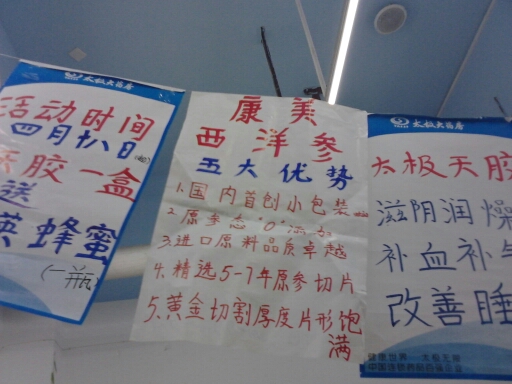 太极大药房
活动时间
四月十八日
天胶一盒
送
英蜂蜜
(一瓶)
康美
西洋参
五大优势
1.国内首创小包装
2.原参态"0"添加
3.进口原料品质卓越
4.精选5-7年原参切片
5.黄金切割厚度片形饱
满
太极大药房
太极天胶
滋阴润燥
补血补气
改善睡
健康世界 太极无限